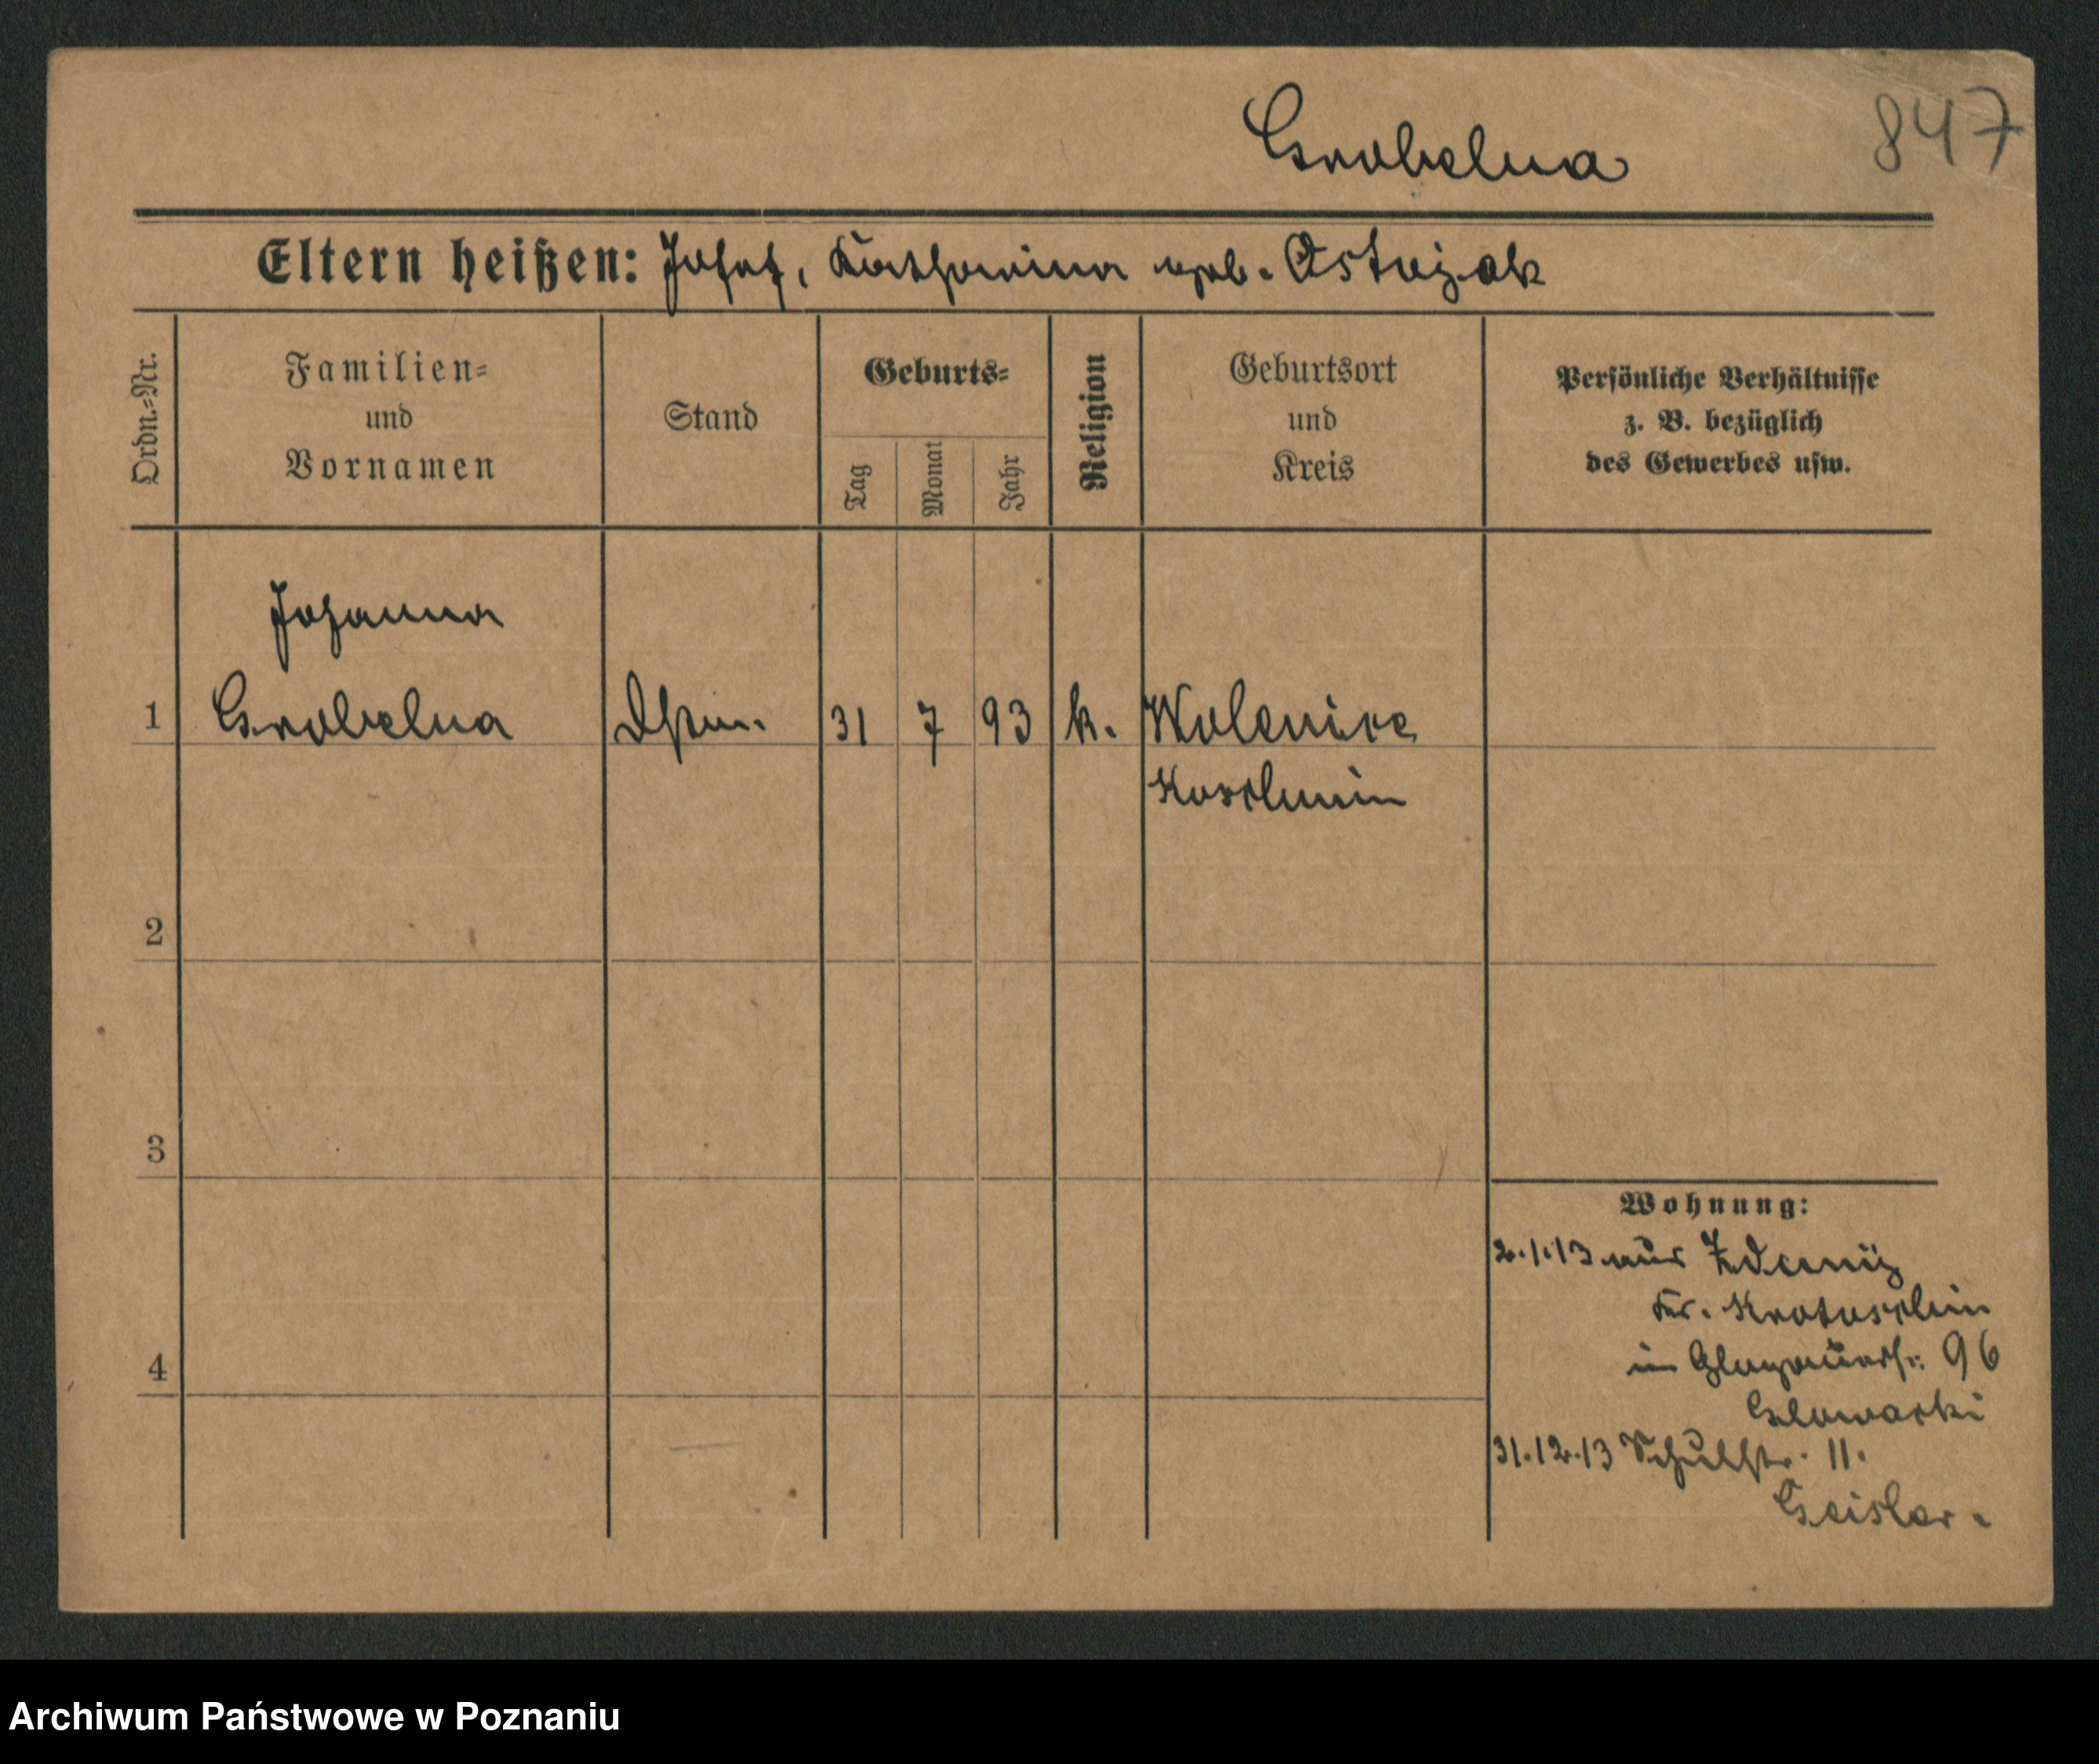 Grobelna
847
Eltern heißen: Josef, Katharina geb. Ostojak
Ordn.-Nr.
Familien-
und
Vornamen
Stand
Geburts-
Tag
Monat
Jahr
Religion
Geburtsort
und
Kreis
Persönliche Verhältnisse
z. B. bezüglich
des Gewerbes usw.
Johanna
1 Grobelna 31 7 93 k. Wolenice
Koschmin
2
3
4
Wohnung:
2.1.13 aus
Kr. Krotoschin
in Glogauerstr. 96
Glowacki
31.12.13 Schulstr. 11.
Geisler.
Archiwum Państwowe w Poznaniu